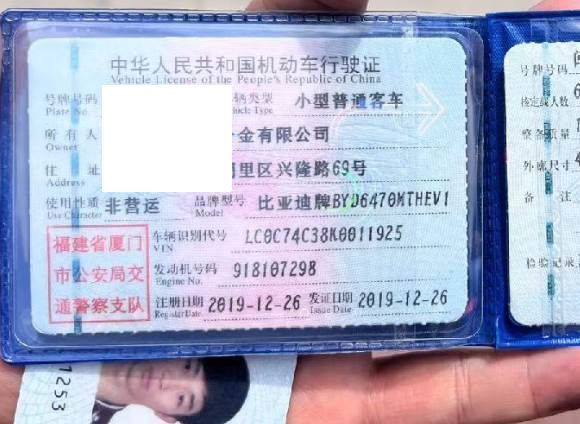 中华人民共和国机动车行驶证
Vehicle License of the People's Republic of China
号牌号码 辆类型 小型普通客车
Plate No. Vehicle Type
所有人 金有限公司
Owner
住 址 里区兴隆路69号
Address
使用性质 非营运 品牌型号 比亚迪牌BYD6470MTHEV1
Use Character Model
福建省厦门
市公安局交
通警察支队
车辆识别代号 LC0C74C38K0011925
VIN
发动机号码 918107298
Engine No.
注册日期 2019-12-26 发证日期 2019-12-26
Register Date Issue Date
号牌号码
核定载人数 6
整备质量 1
外廓尺寸
备 注
检验记录
1253